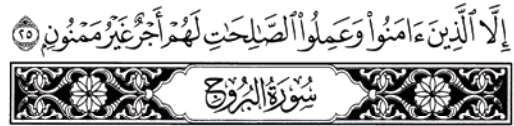 إِلَّا الَّذِينَ ءَامَنُوا۟ وَعَمِلُوا۟ الصَّٰلِحَٰتِ لَهُمْ أَجْرٌ غَيْرُ مَمْنُونٍ ۝٢٥
سُورَةُ الْبُرُوجِ